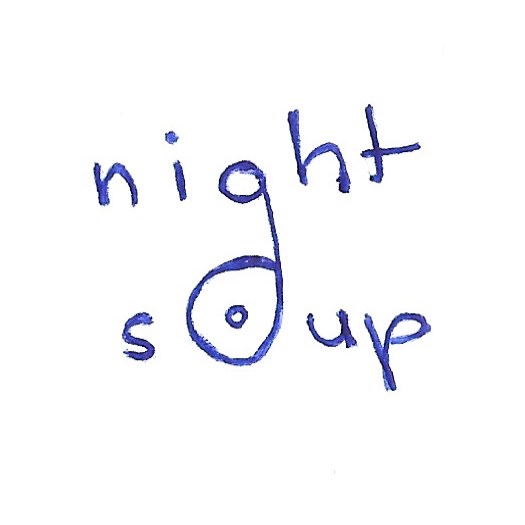 night
soup